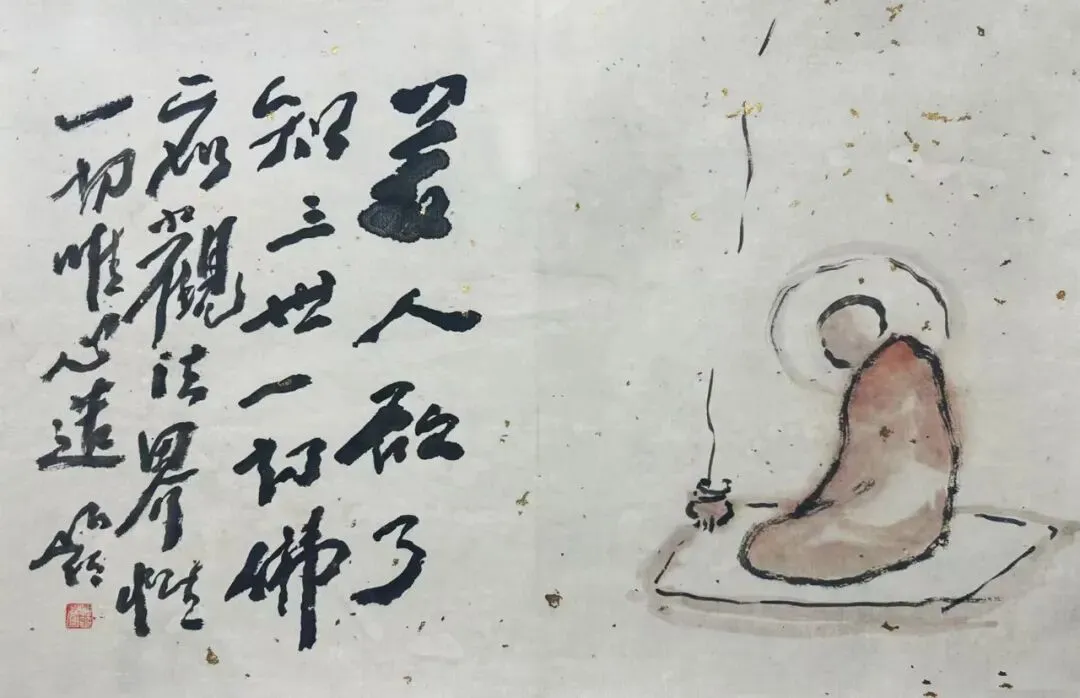 若人欲了
知三世一切佛
应观法界性
一切唯心造